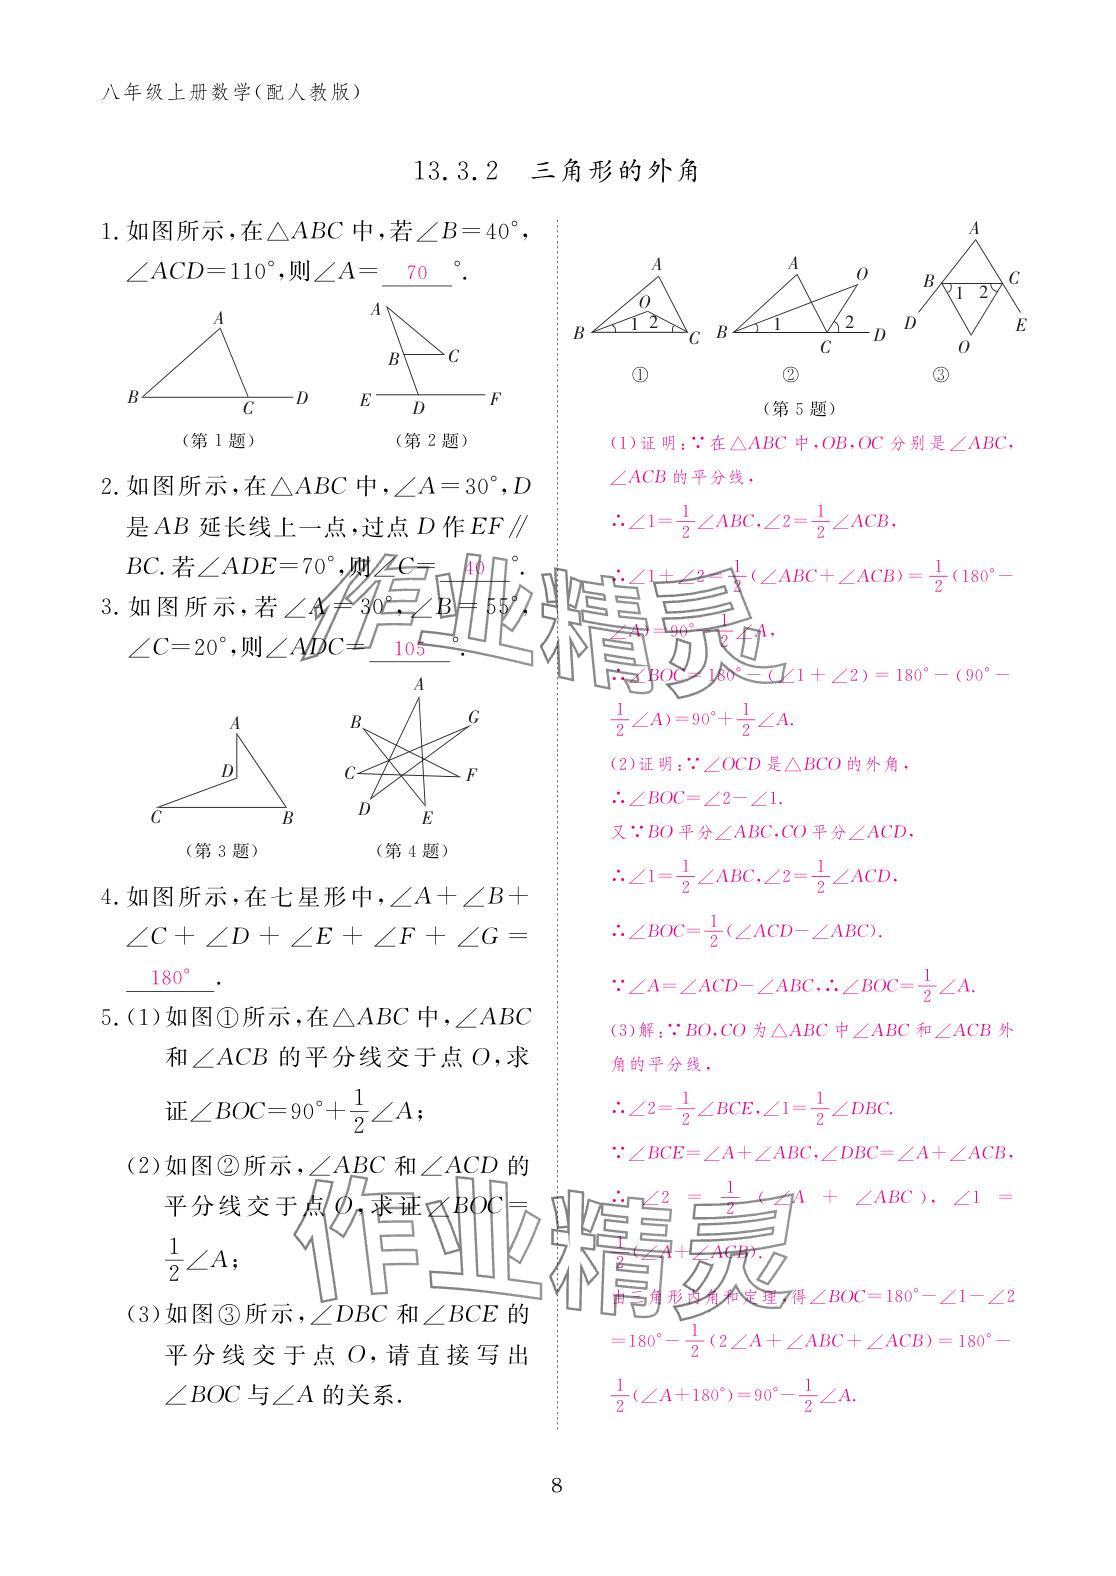 八年级上册数学(配人教版)
13.3.2 三角形的外角
1. 如图所示,在△ABC 中,若∠B=40°,
∠ACD=110°,则∠A= 70 °.
A
B
C
D
(第 1 题)
A
B
C
E
D
F
(第 2 题)
2. 如图所示,在△ABC 中,∠A=30°,D
是 AB 延长线上一点,过点 D 作 EF∥
BC.若∠ADE=70°,则∠C= 40 °.
3. 如图所示,若∠A=30°,∠B=55°,
∠C=20°,则∠ADC= 105 °.
A
D
C
B
(第 3 题)
A
B
G
C
F
D
E
(第 4 题)
4. 如图所示,在七星形中,∠A+∠B+
∠C+∠D+∠E+∠F+∠G=
180° .
5. (1)如图①所示,在△ABC 中,∠ABC
和∠ACB 的平分线交于点 O,求
证∠BOC=90°+1/2∠A;
(2)如图②所示,∠ABC 和∠ACD 的
平分线交于点 O,求证∠BOC=
1/2∠A;
(3)如图③所示,∠DBC 和∠BCE 的
平分线交于点 O,请直接写出
∠BOC 与∠A 的关系.
A
O
B
1 2
C
①
A
O
B
1
2
C
D
②
A
B
C
1 2
D
E
O
③
(第 5 题)
(1)证明:∵在△ABC 中,OB,OC 分别是∠ABC,
∠ACB 的平分线,
∴∠1=1/2∠ABC,∠2=1/2∠ACB,
∴∠1+∠2=1/2(∠ABC+∠ACB)=1/2(180°-
∠A)=90°-1/2∠A,
∴∠BOC=180°-(∠1+∠2)=180°-(90°-
1/2∠A)=90°+1/2∠A.
(2)证明:∵∠OCD 是△BCO 的外角,
∴∠BOC=∠2-∠1.
又∵BO 平分∠ABC,CO 平分∠ACD,
∴∠1=1/2∠ABC,∠2=1/2∠ACD,
∴∠BOC=1/2(∠ACD-∠ABC).
∵∠A=∠ACD-∠ABC,∴∠BOC=1/2∠A.
(3)解:∵BO,CO 为△ABC 中∠ABC 和∠ACB 外
角的平分线,
∴∠2=1/2∠BCE,∠1=1/2∠DBC.
∵∠BCE=∠A+∠ABC,∠DBC=∠A+∠ACB,
∴∠2=1/2(∠A+∠ABC),∠1=
1/2(∠A+∠ACB).
由三角形内角和定理,得∠BOC=180°-∠1-∠2
=180°-1/2(2∠A+∠ABC+∠ACB)=180°-
1/2(∠A+180°)=90°-1/2∠A.
作业精灵
作业精灵
8